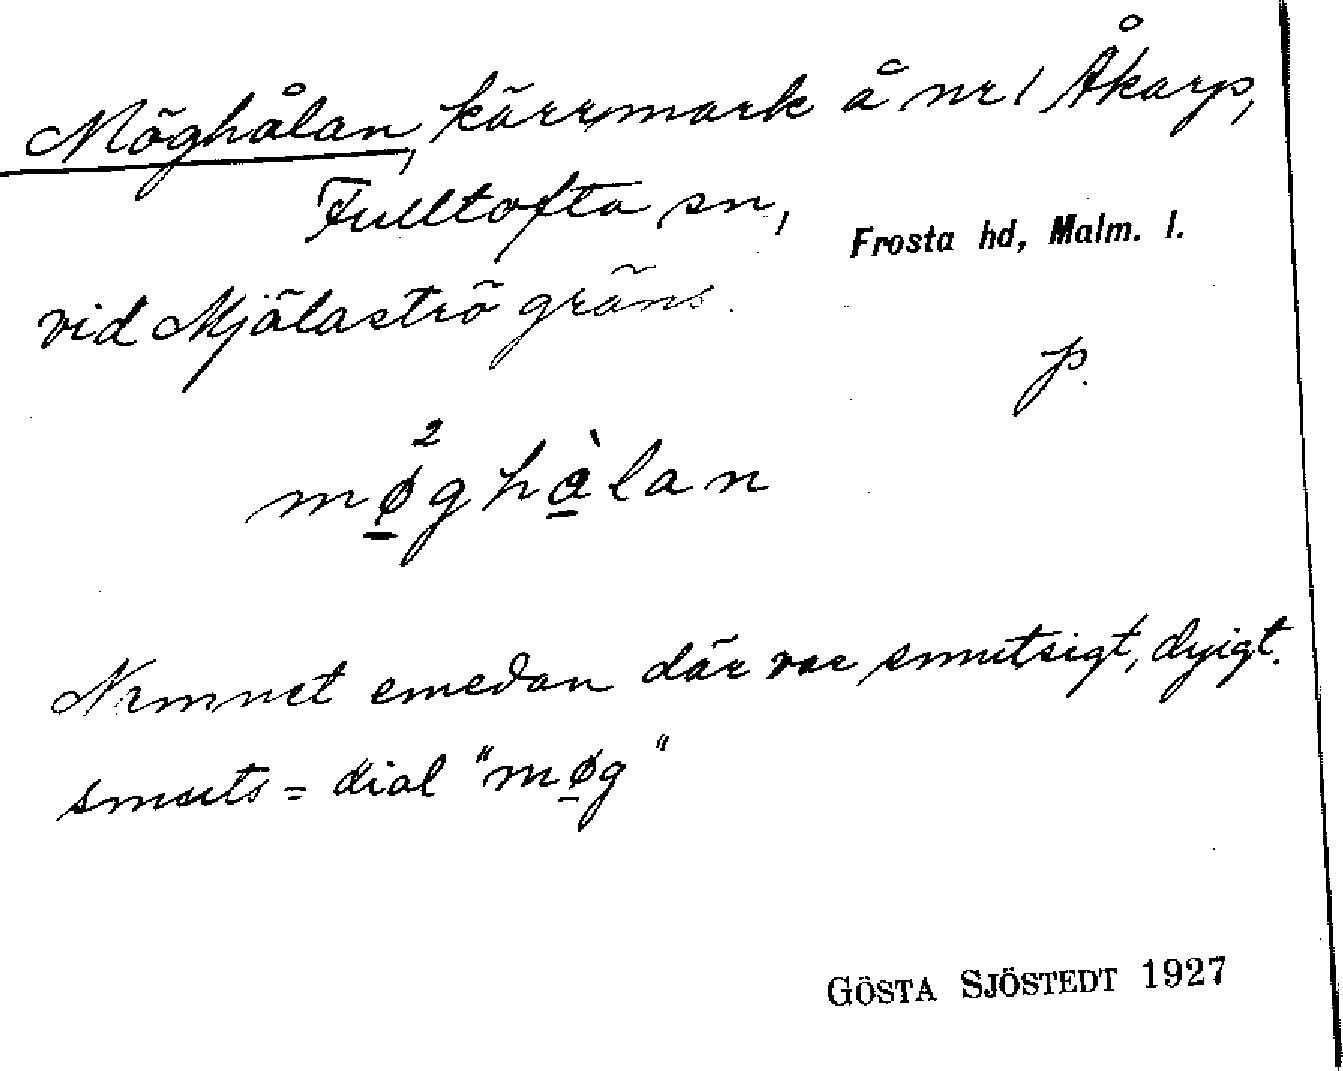 Möghålan, kärrmark å nr 1 Åkarp,
Fulltofta sn,
Frosta hd, Malm. l.
vid Mjälaströ gräns.
p.
2
mø̱ghà̱lan
Namnet emedan där var smutsigt, dyigt.
smuts = dial "mø̱g"
GÖSTA SJÖSTEDT 1927